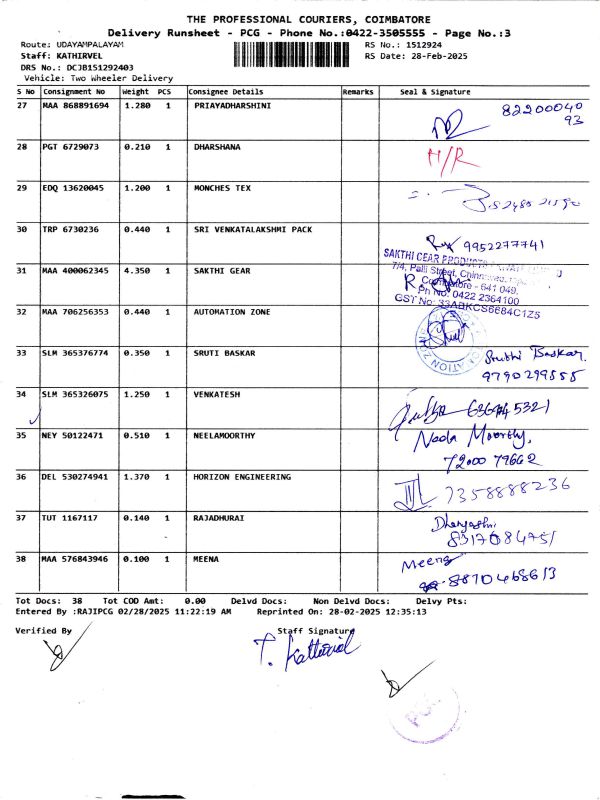 THE PROFESSIONAL COURIERS, COIMBATORE
Delivery Runsheet - PCG - Phone No.:0422-3505555 - Page No.:3
Route: UDAYAMPALAYAM RS No.: 1512924
Staff: KATHIRVEL RS Date: 28-Feb-2025
DRS No.: DCJB151292403
Vehicle: Two Wheeler Delivery
S No Consignment No Weight PCS Consignee Details Remarks Seal & Signature
27 MAA 868891694 1.280 1 PRIAYADHARSHINI 82200040
93
28 PGT 6729073 0.210 1 DHARSHANA H/R
29 EDQ 13620045 1.200 1 MONCHES TEX
30 TRP 6730236 0.440 1 SRI VENKATALAKSHMI PACK 9952277741
SAKTHI GEAR PRODUCTS
7/4, Palli Street,
31 MAA 400062345 4.350 1 SAKTHI GEAR Coimbatore - 641 049.
Ph No: 0422 2364100
GST No: 33ABKCS6684C1Z5
32 MAA 706256353 0.440 1 AUTOMATION ZONE
33 SLM 365376774 0.350 1 SRUTI BASKAR Sruthi Baskar.
9790299555
34 SLM 365326075 1.250 1 VENKATESH
35 NEY 50122471 0.510 1 NEELAMOORTHY Neela Moorthy,
72000 79662
36 DEL 530274941 1.370 1 HORIZON ENGINEERING 7358888236
37 TUT 1167117 0.140 1 RAJADHURAI
38 MAA 576843946 0.100 1 MEENA Meena
Tot Docs: 38 Tot COD Amt: 0.00 Delvd Docs: Non Delvd Docs: Delvy Pts:
Entered By :RAJIPCG 02/28/2025 11:22:19 AM Reprinted On: 28-02-2025 12:35:13
Verified By Staff Signature
T. Kathirvel
PCG